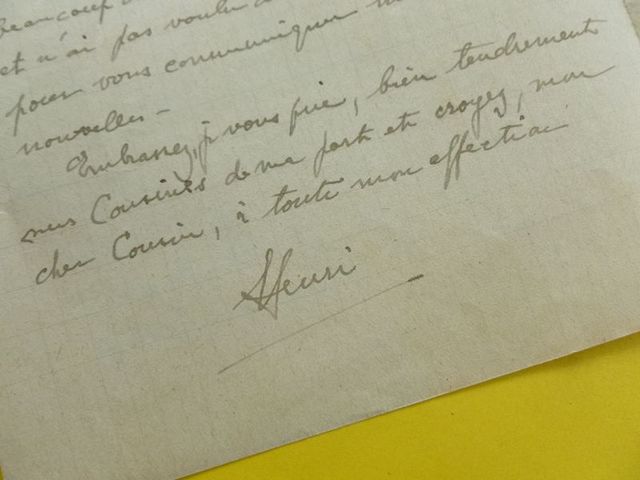 beaucoup
et n'ai pas voulu
pour vous communiquer
nouvelles –
Embrassez, je vous prie, bien tendrement
mes Cousines de ma part et croyez, mon
cher Cousin, à toute mon affection
Henri